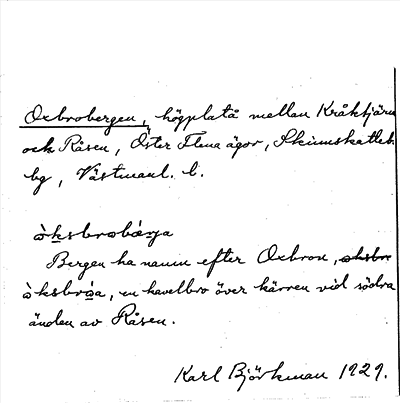 Oxbrobergen, högplatå mellan Kråktjärn
och Råsen, Öster Flena ägor, Skinnskatteb.
bg, Västmanl. l.
òksbrobæ̀rja
Bergen ha namn efter Oxbron, oksbro
òksbròa, en kavelbro över kärren vid södra
änden av Råsen.
Karl Björkman 1929.